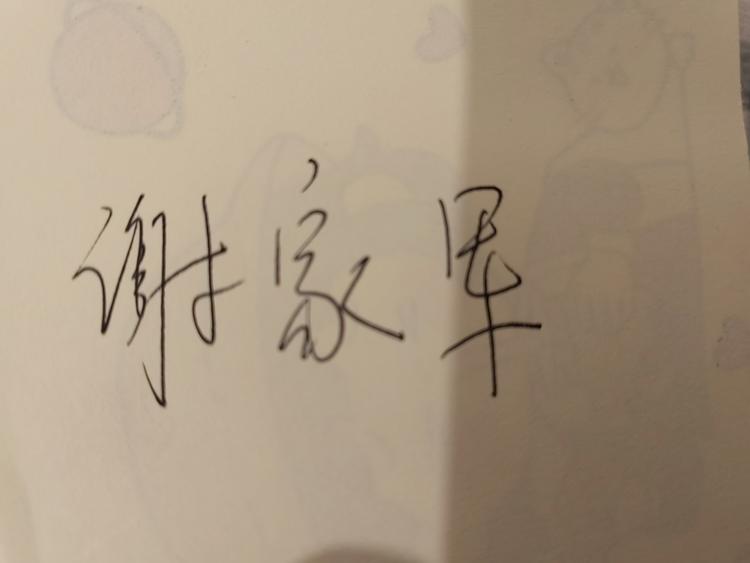 谢家军